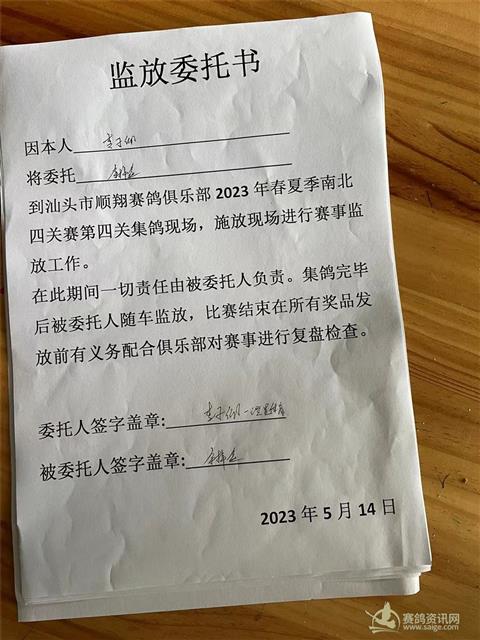 监放委托书
因本人
将委托
到汕头市顺翔赛鸽俱乐部 2023 年春夏季南北
四关赛第四关集鸽现场，施放现场进行赛事监
放工作。
在此期间一切责任由被委托人负责。集鸽完毕
后被委托人随车监放，比赛结束在所有奖品发
放前有义务配合俱乐部对赛事进行复盘检查。
委托人签字盖章:
被委托人签字盖章:
2023 年 5 月 14 日
赛鸽资讯网
www.saige.com